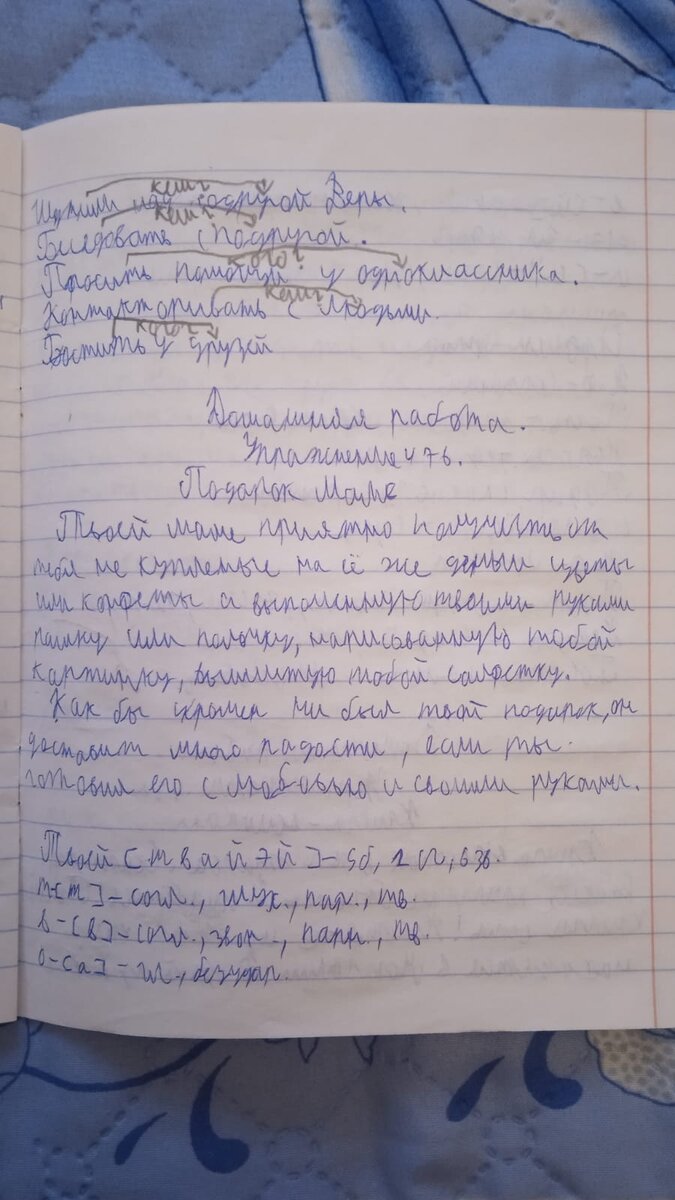 кем?
Шутили над подругой Веры.
кем?
Беседовать с подругой.
кого?
Просить помощи у одноклассника.
кем?
Контакторивать с людьми.
кого?
Гостить у друзей
Домашняя работа.
Упражнение 476.
Подарок маме
Твоей маме приятно получить от
тебя не купленые на её же деньги цветы
или конфеты а выполненную твоими руками
или полочку, нарисованную тобой
картинку, вышитую тобой салфетку.
Как бы скромен ни был твой подарок, он
доставит много радости, если ты
готовил его с любовью и своими руками.
Твоей [твайэй]-5б, 2 сл,
т-[т]-согл., глух., пар., тв.
в-[в]-согл., звон., парн., тв.
о-[а]-гл., безудар.